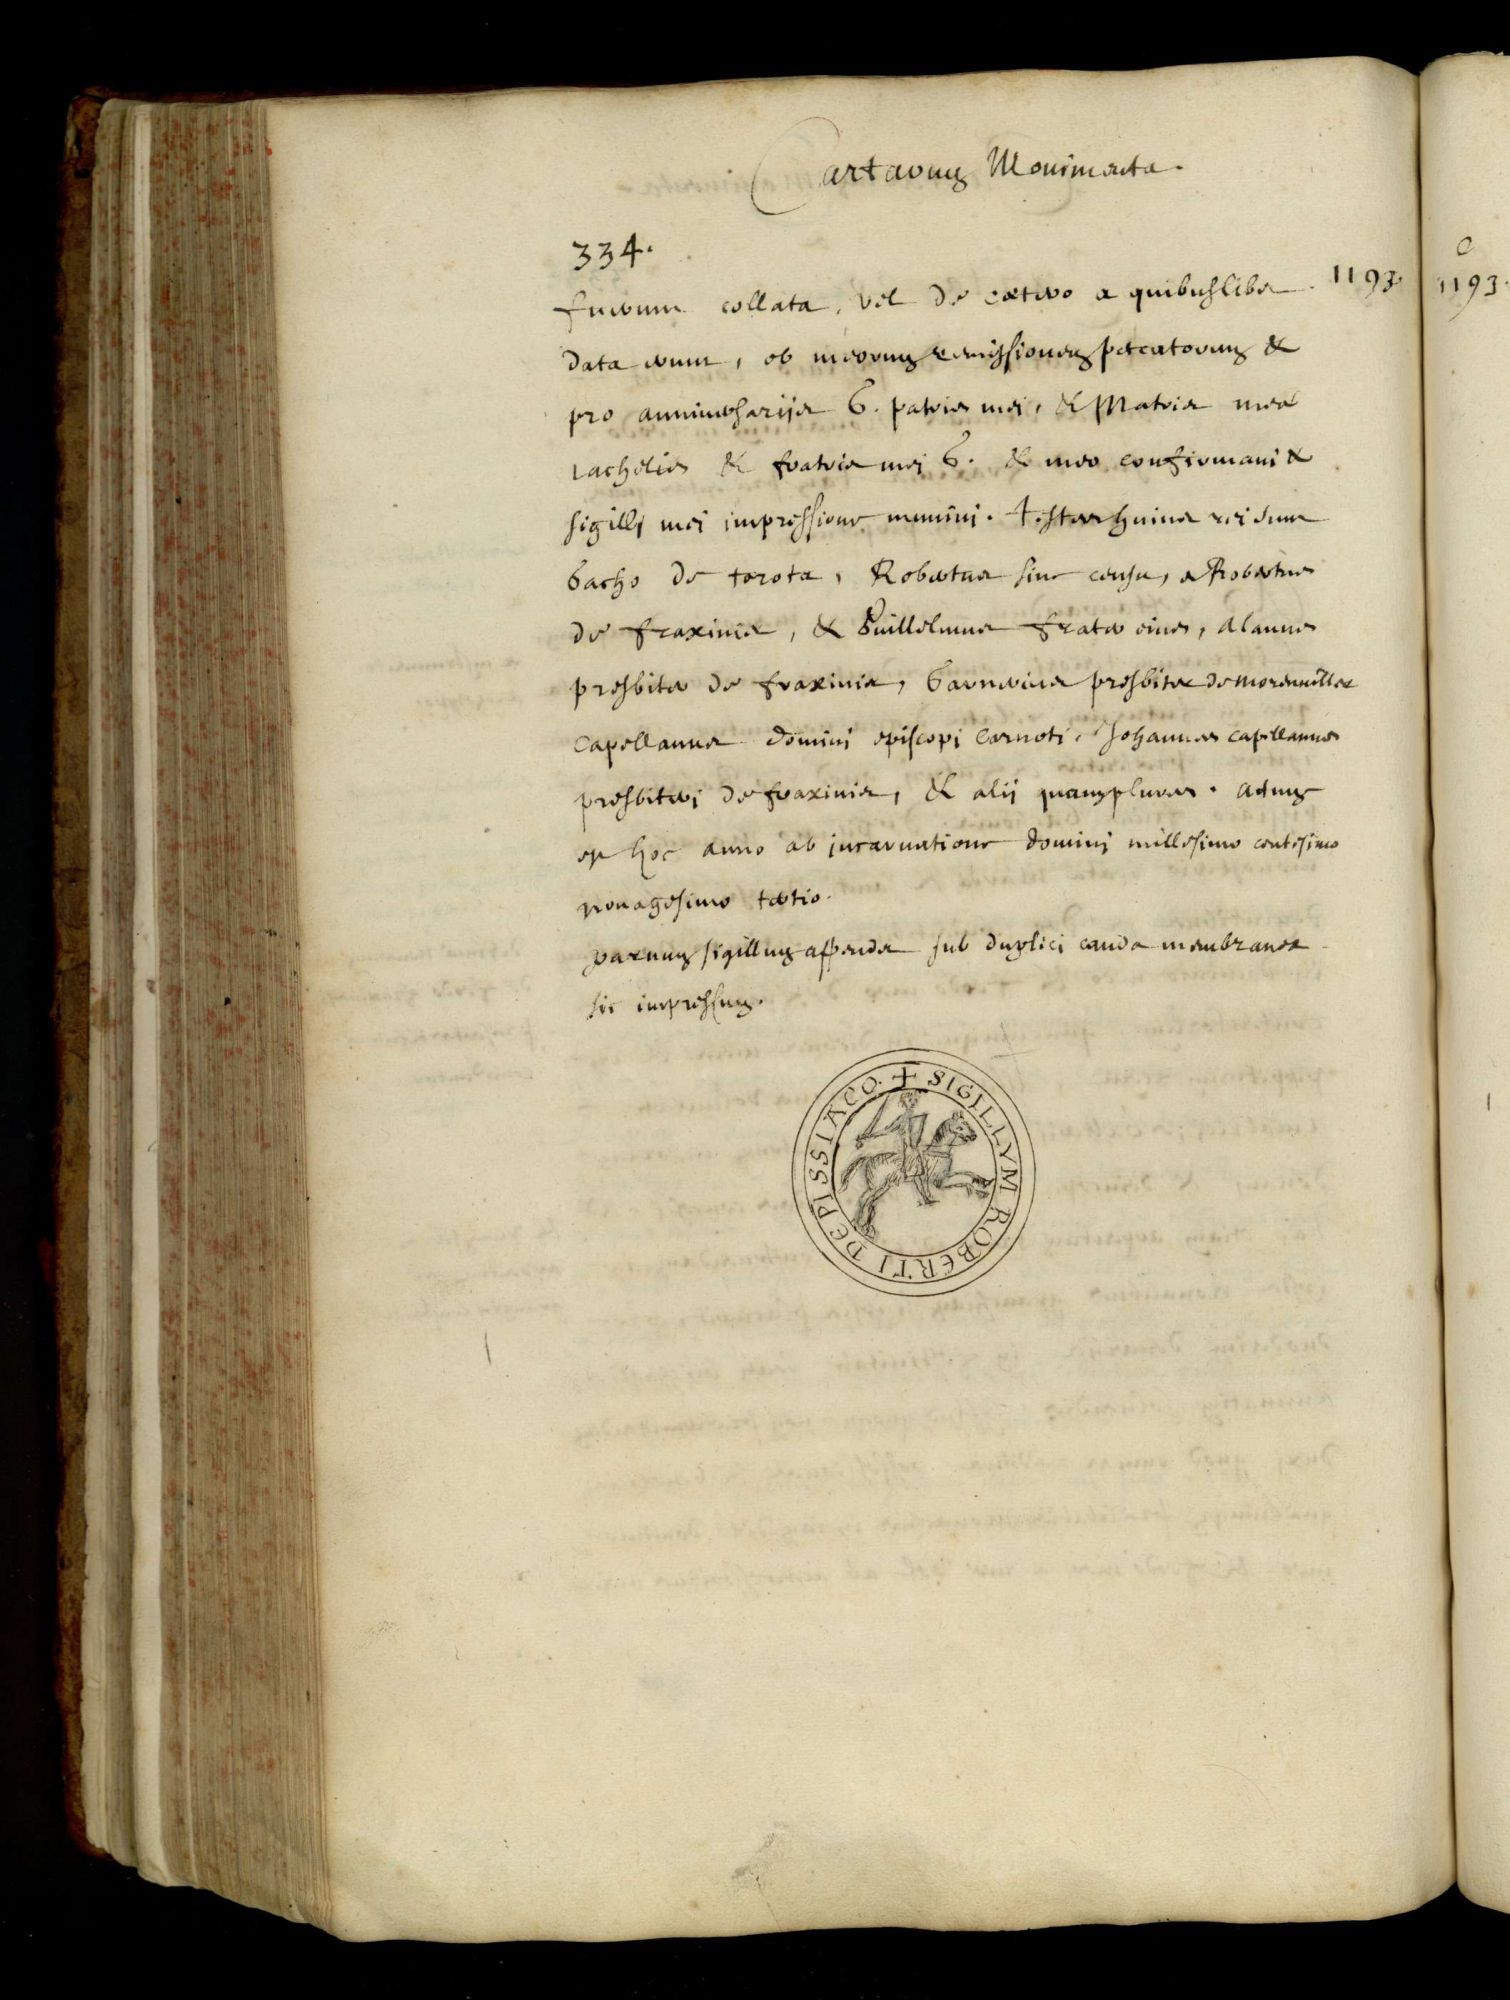 Cartarum Monimenta.
334.
fuerunt collata, vel de cætero a quibuslibet 1193.
data erunt, ob meorum remissionem peccatorum &
pro anniversarijs G. patris mei, & Matris meæ
& fratris mei G. & meo confirmavi &
sigilli mei impressione munivi. testes huius rei sunt
Gacho de torota, Robertus sine censu, Robertus
de fraxinis, & Guillelmus frater eius, Alanus
presbiter de fraxinis, Garnerius presbiter de morenvilla
Capellanus domini episcopi Carnoti, Johannes capellanus
presbiteri de fraxinis, & alij quamplures. actum
est hoc anno ab incarnatione domini millesimo centesimo
nonagesimo tertio.
parvum sigillum appendet sub duplici cauda membranea
sic impressum.
+ SIGILLVM ROBERTI DE PISSIACO.
1193.